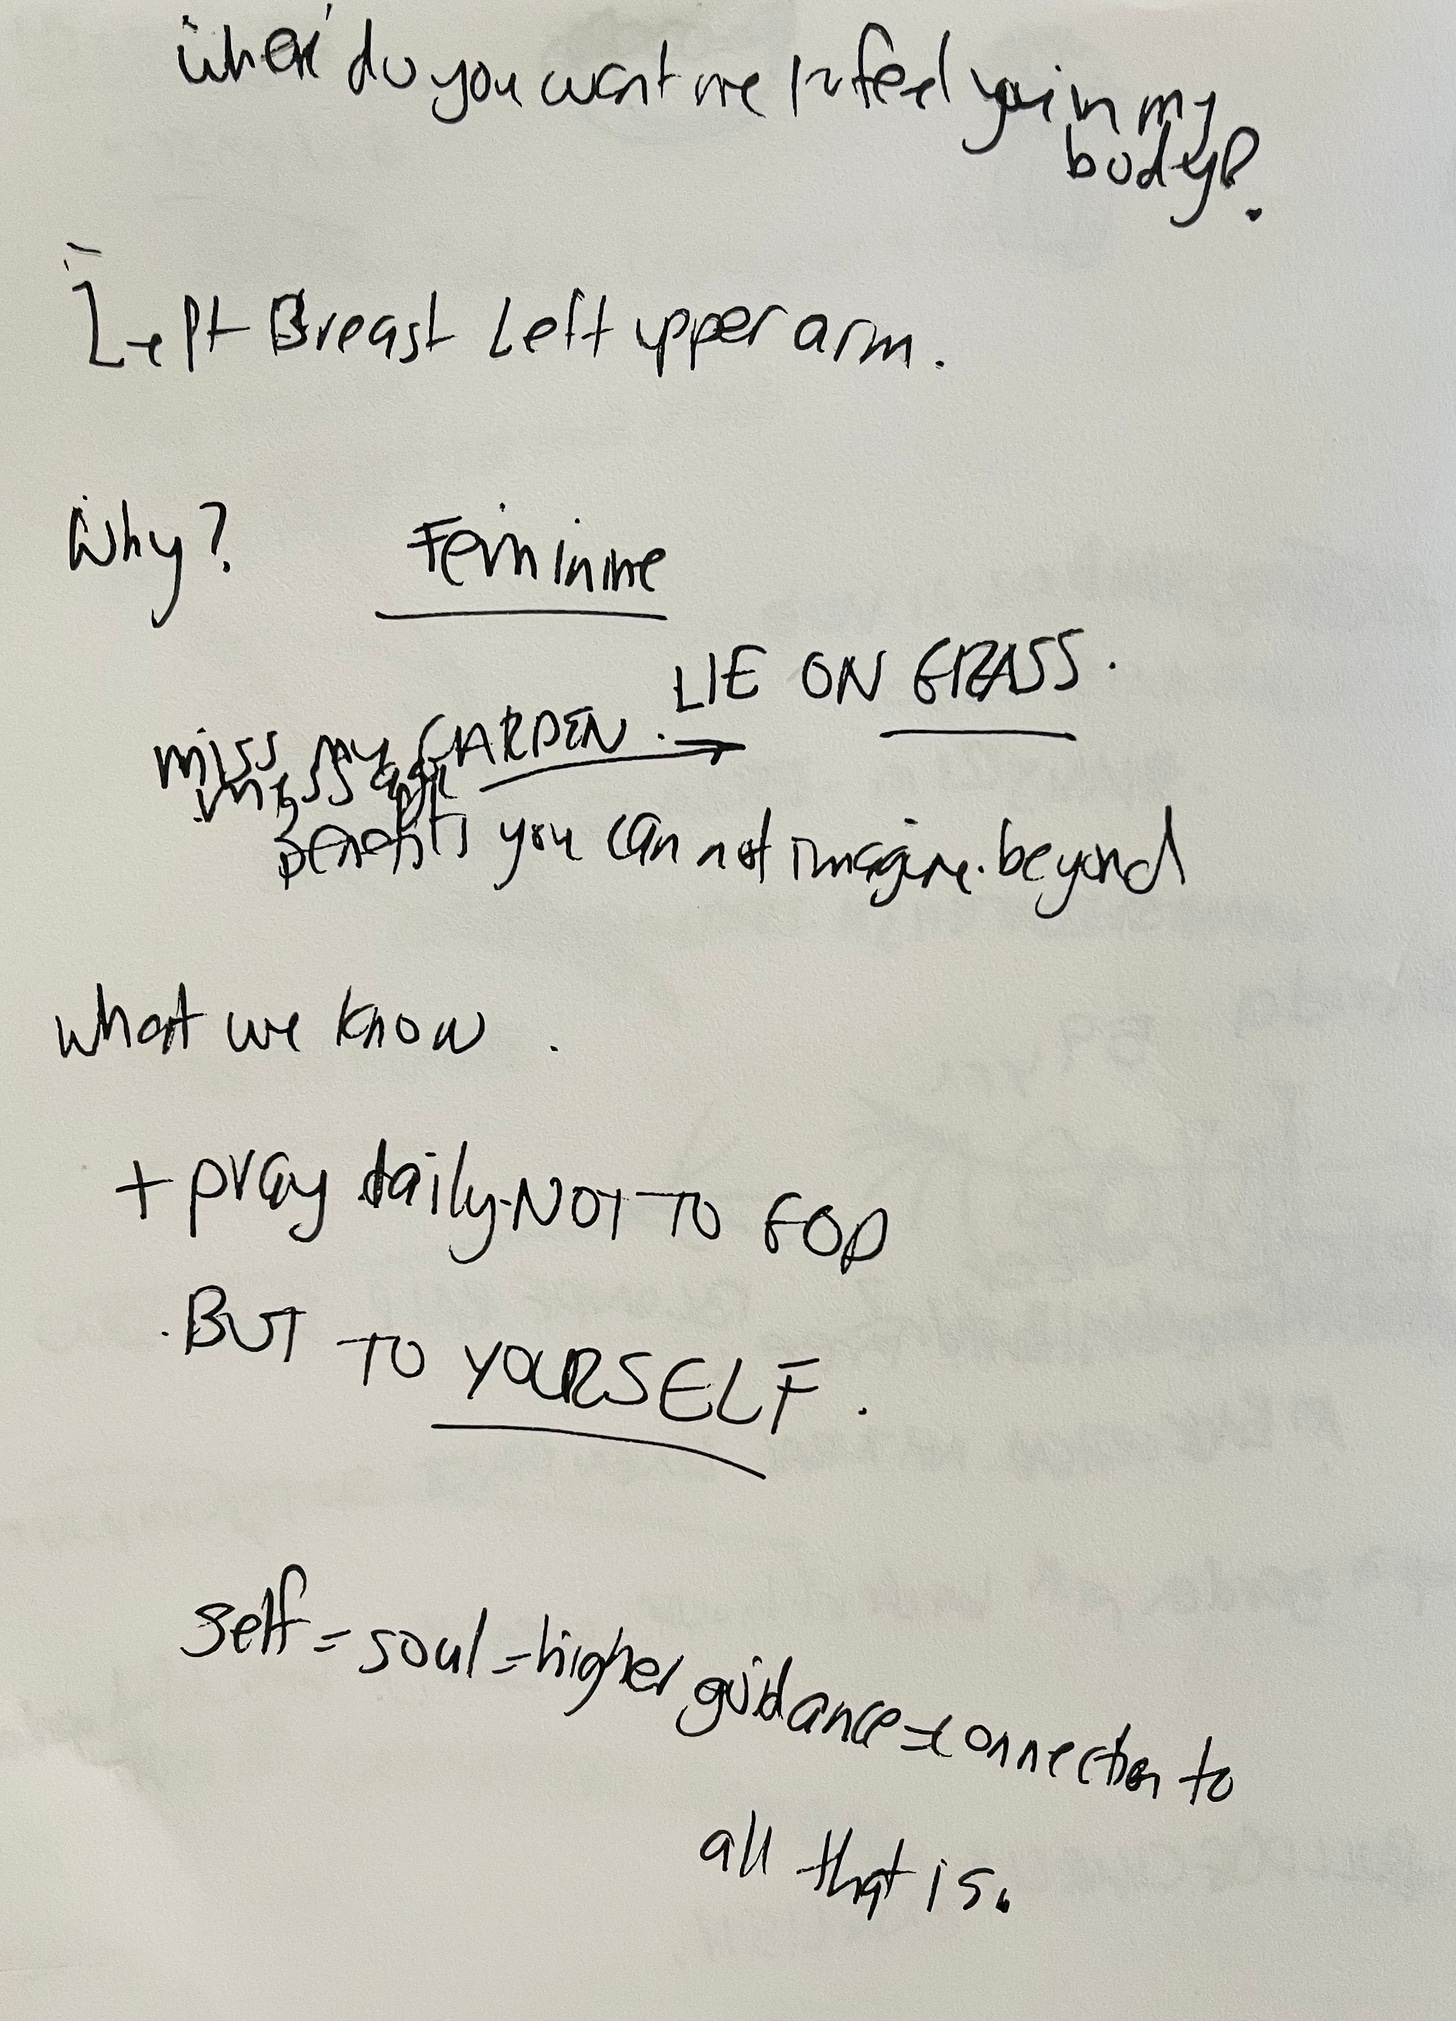 where do you want me to feel you in my
body?
Left Breast Left upper arm.
Why? Feminine
LIE ON GRASS.
miss my GARDEN.
miss
Benefits you can not imagine. beyond
what we know.
+ pray daily - NOT TO GOD
. BUT TO YOURSELF.
self = soul = higher guidance = connection to
all that is.